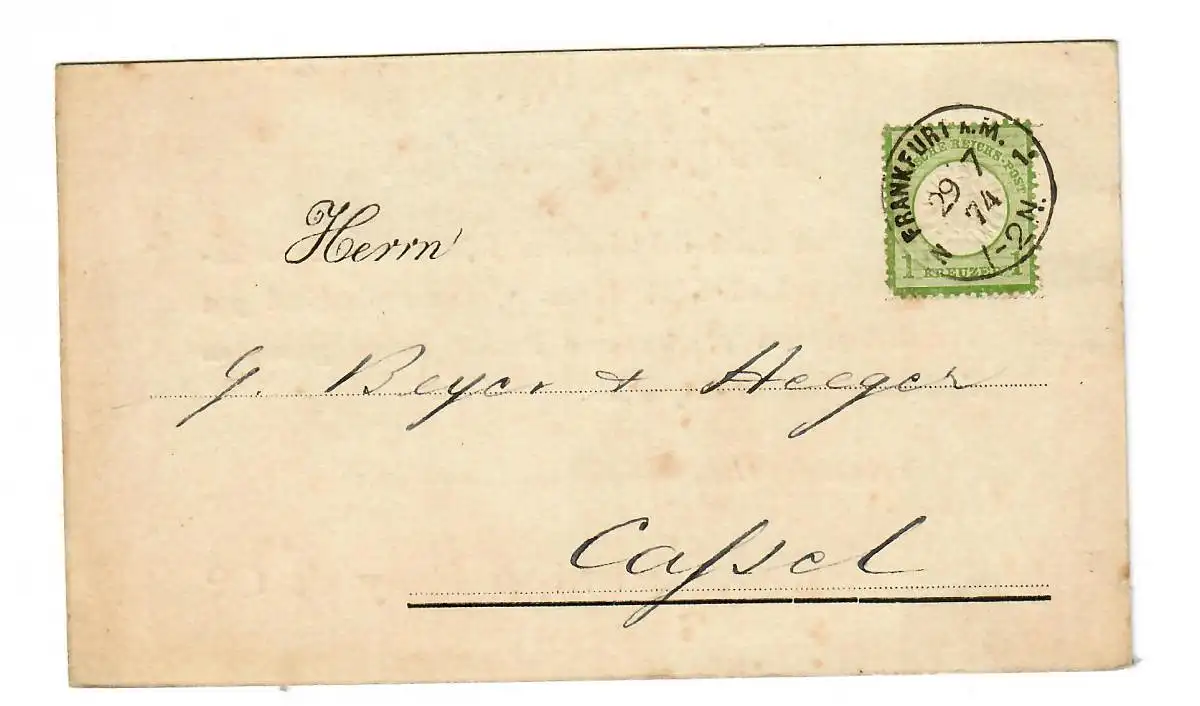 FRANKFURT A.M. 1.
29 7
74
1-2N.
N
DEUTSCHE REICHS-POST
1 KREUZER 1
Herrn
G. Beyer + Heeger
Caſsel